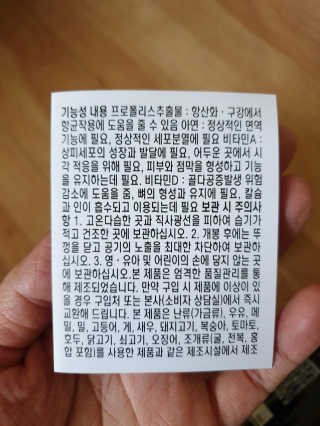 기능성 내용 프로폴리스추출물 : 항산화 · 구강에서
항균작용에 도움을 줄 수 있음 아연 : 정상적인 면역
기능에 필요, 정상적인 세포분열에 필요 비타민A :
상피세포의 성장과 발달에 필요, 어두운 곳에서 시
각 적응을 위해 필요, 피부와 점막을 형성하고 기능
을 유지하는데 필요. 비타민D : 골다공증발생 위험
감소에 도움을 줌, 뼈의 형성과 유지에 필요, 칼슘
과 인이 흡수되고 이용되는데 필요 보관 시 주의사
항 1. 고온다습한 곳과 직사광선을 피하여 습기가
적고 건조한 곳에 보관하십시오. 2. 개봉 후에는 뚜
껑을 닫고 공기의 노출을 최대한 차단하여 보관하
십시오. 3. 영 · 유아 및 어린이의 손에 닿지 않는 곳
에 보관하십시오. 본 제품은 엄격한 품질관리를 통
해 제조되었습니다. 만약 구입 시 제품에 이상이 있
을 경우 구입처 또는 본사(소비자 상담실)에서 즉시
교환해 드립니다. 본 제품은 난류(가금류), 우유, 메
밀, 밀, 고등어, 게, 새우, 돼지고기, 복숭아, 토마토,
호두, 닭고기, 쇠고기, 오징어, 조개류(굴, 전복, 홍
합 포함)를 사용한 제품과 같은 제조시설에서 제조